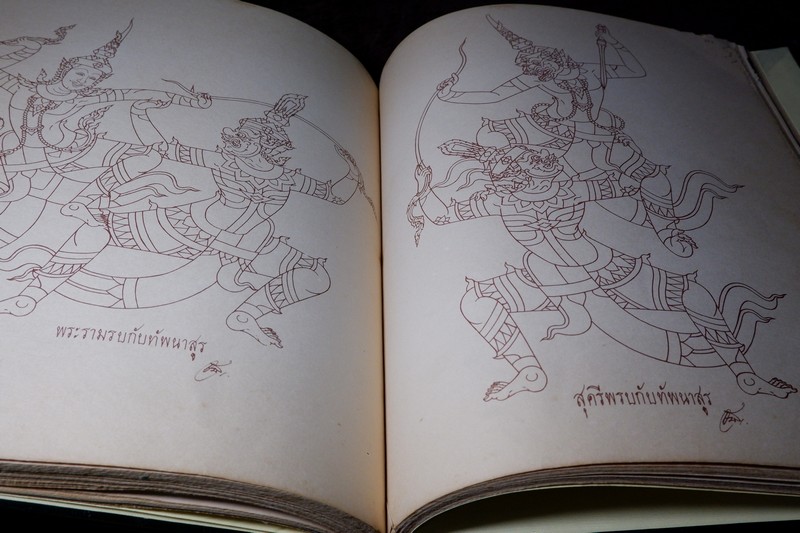 พระรามรบกับทัพนาสูร
สุครีพรบกับทัพนาสูร